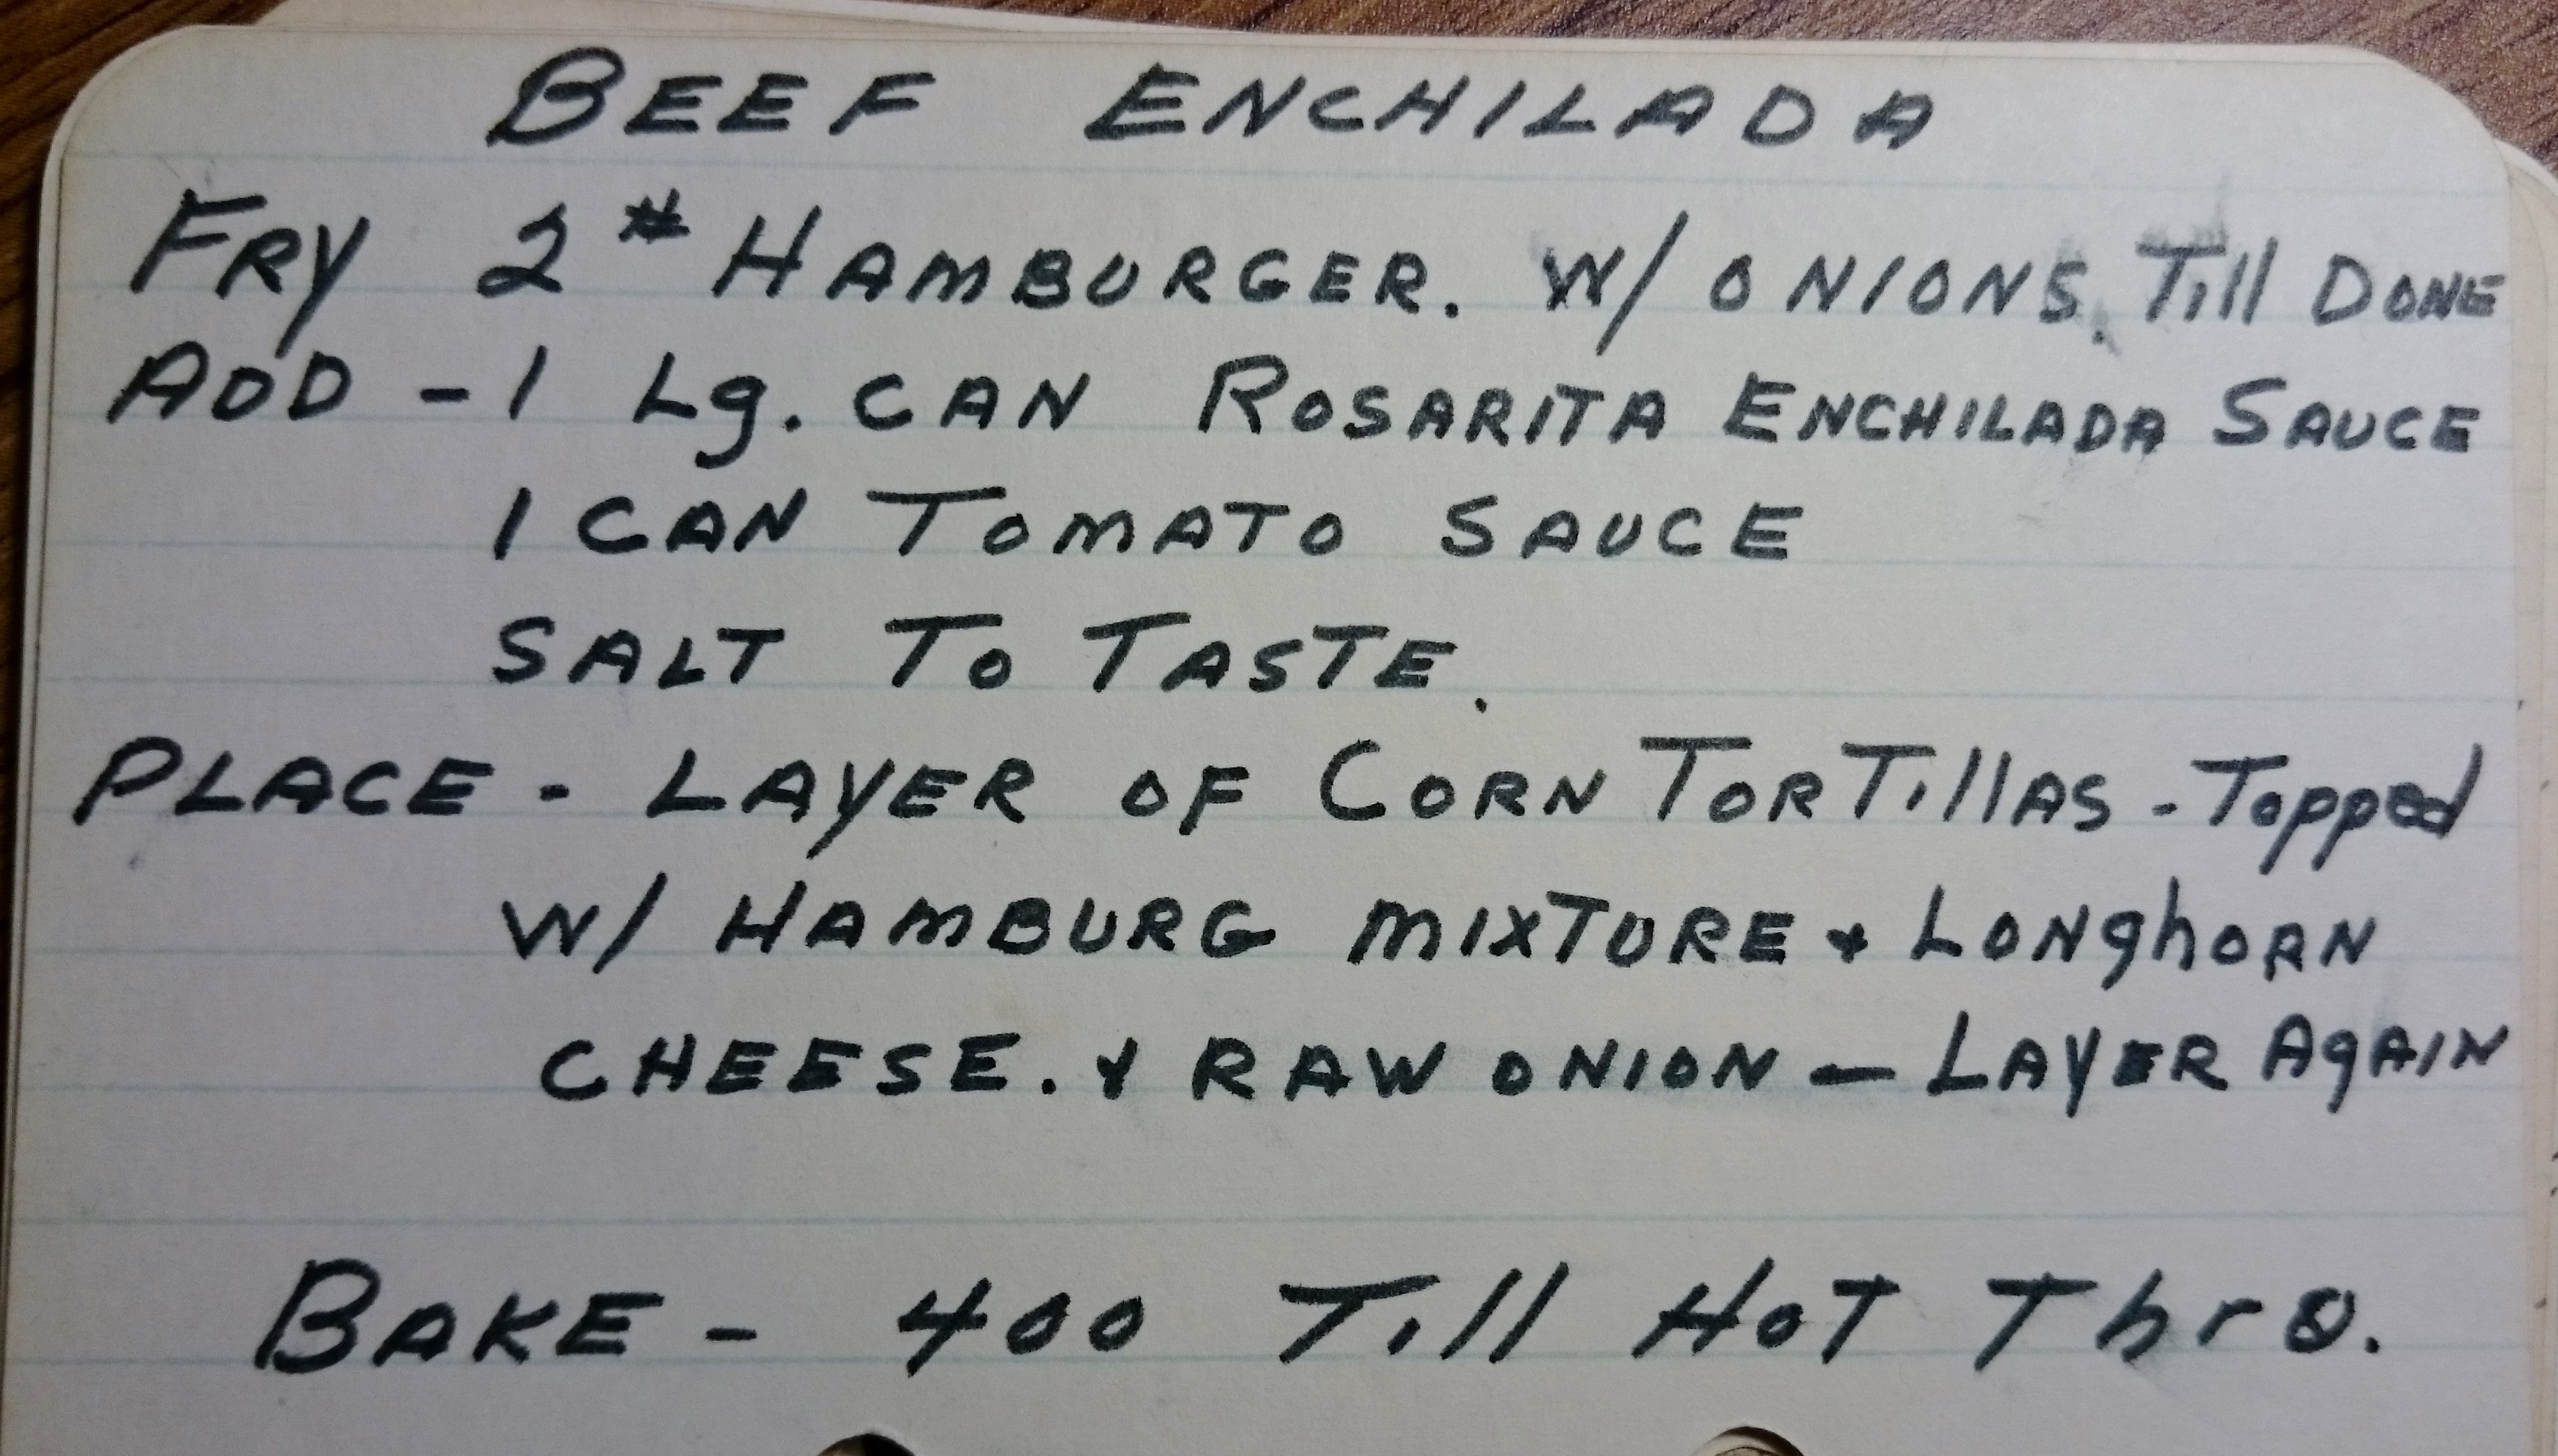 BEEF ENCHILADA
FRY 2# HAMBURGER. W/ ONIONS. Till DONE
ADD - 1 Lg. CAN ROSARITA ENCHILADA SAUCE
1 CAN TOMATO SAUCE
SALT TO TASTE.
PLACE - LAYER OF CORN TORTillAS - Topped
W/ HAMBURG MIXTURE & LONghORN
CHEESE. & RAW ONION — LAYER AgAIN
BAKE - 400 Till HOT Thro.